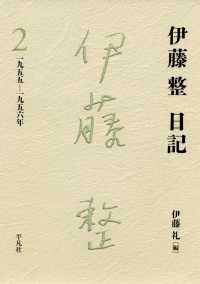 伊藤 整 日記
2
一九五五―一九五六年
伊藤 整
伊藤 礼[編]
平凡社